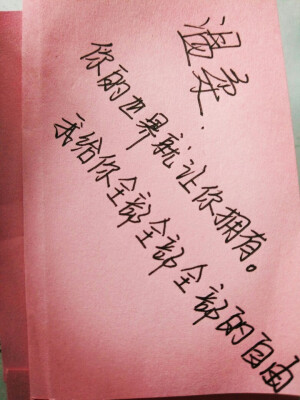 温柔.
你的世界就让你拥有。
我给你全部全部全部的自由